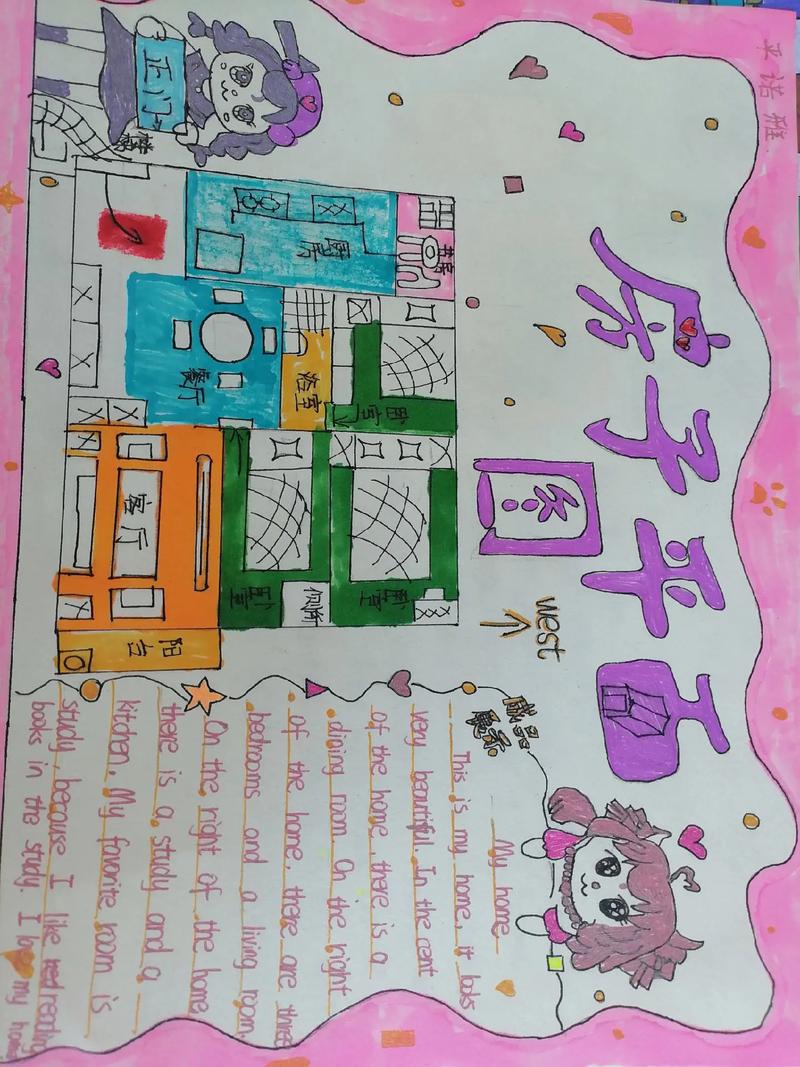 诺雅
房子平面
图
west
正门
楼梯
书房
厨房
餐厅
浴室
卧室
卧室
卧室
厕所
客厅
阳台
品
展示
My home
This is my home, it looks
very beautiful. In the cent
of the home, there is a
dining room. On the right
of the home, there are three
bedrooms and a living room.
On the right of the home
there is a study and a
kitchen. My favorite room is
study because I like reading
books in the study. I my home